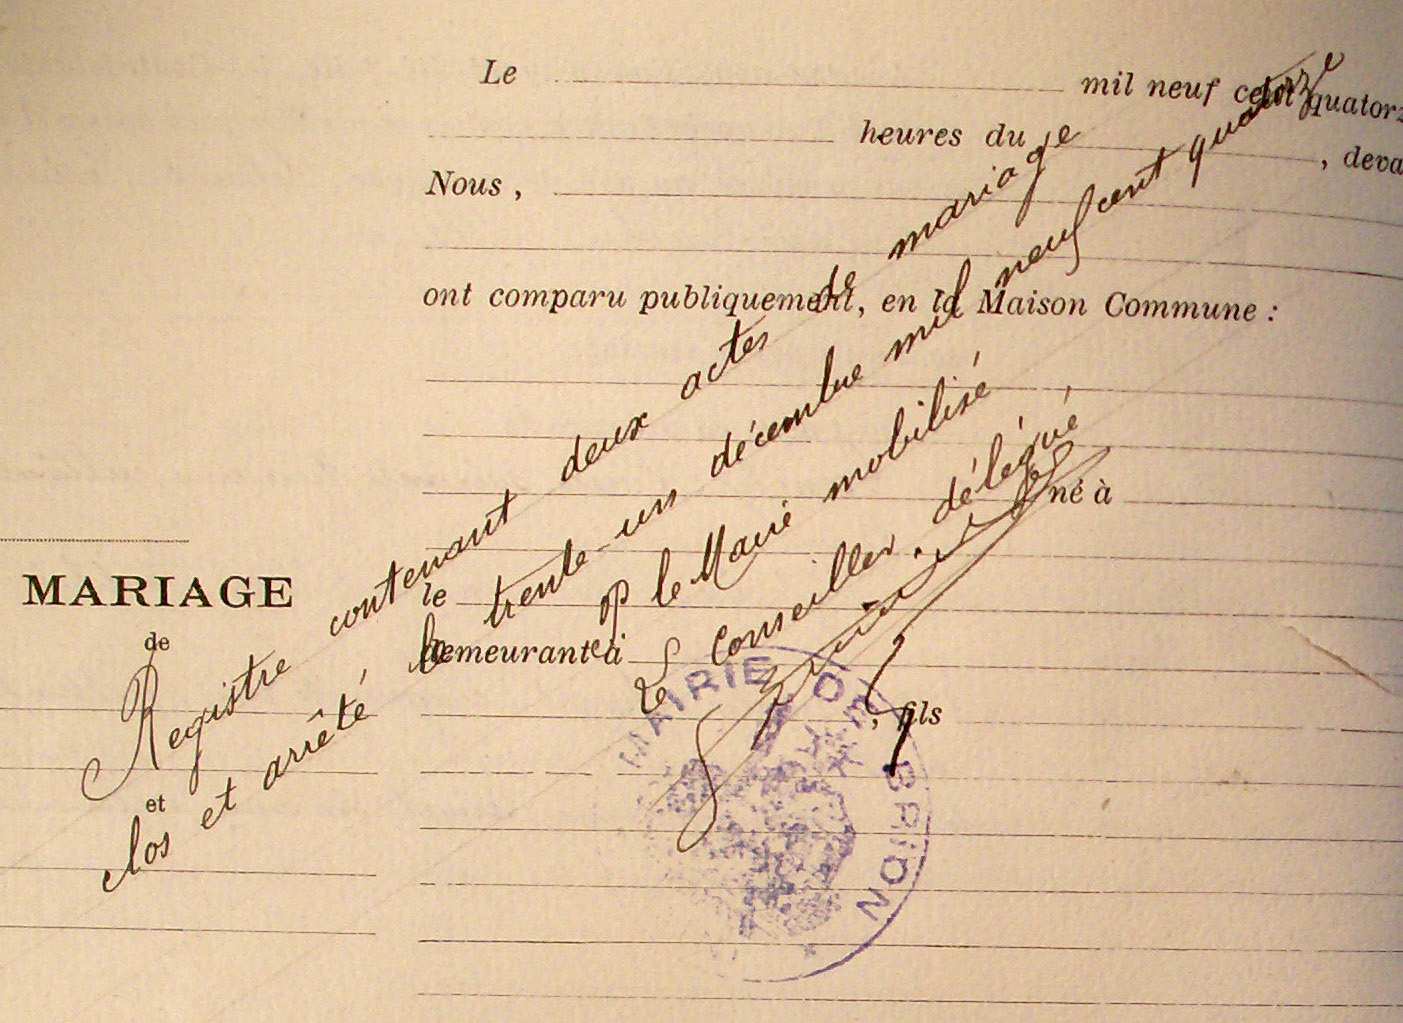 Le mil neuf cent quatorz
heures du , deva
Nous ,
ont comparu publiquement, en la Maison Commune :
né à
MARIAGE
le
de
demeurant à
, fils
et
Registre contenant deux actes de mariage
clos et arrêté le trente-un décembre mil neuf cent quatorze
Le Maire mobilisé
Le Conseiller délégué
MAIRIE DE BRION